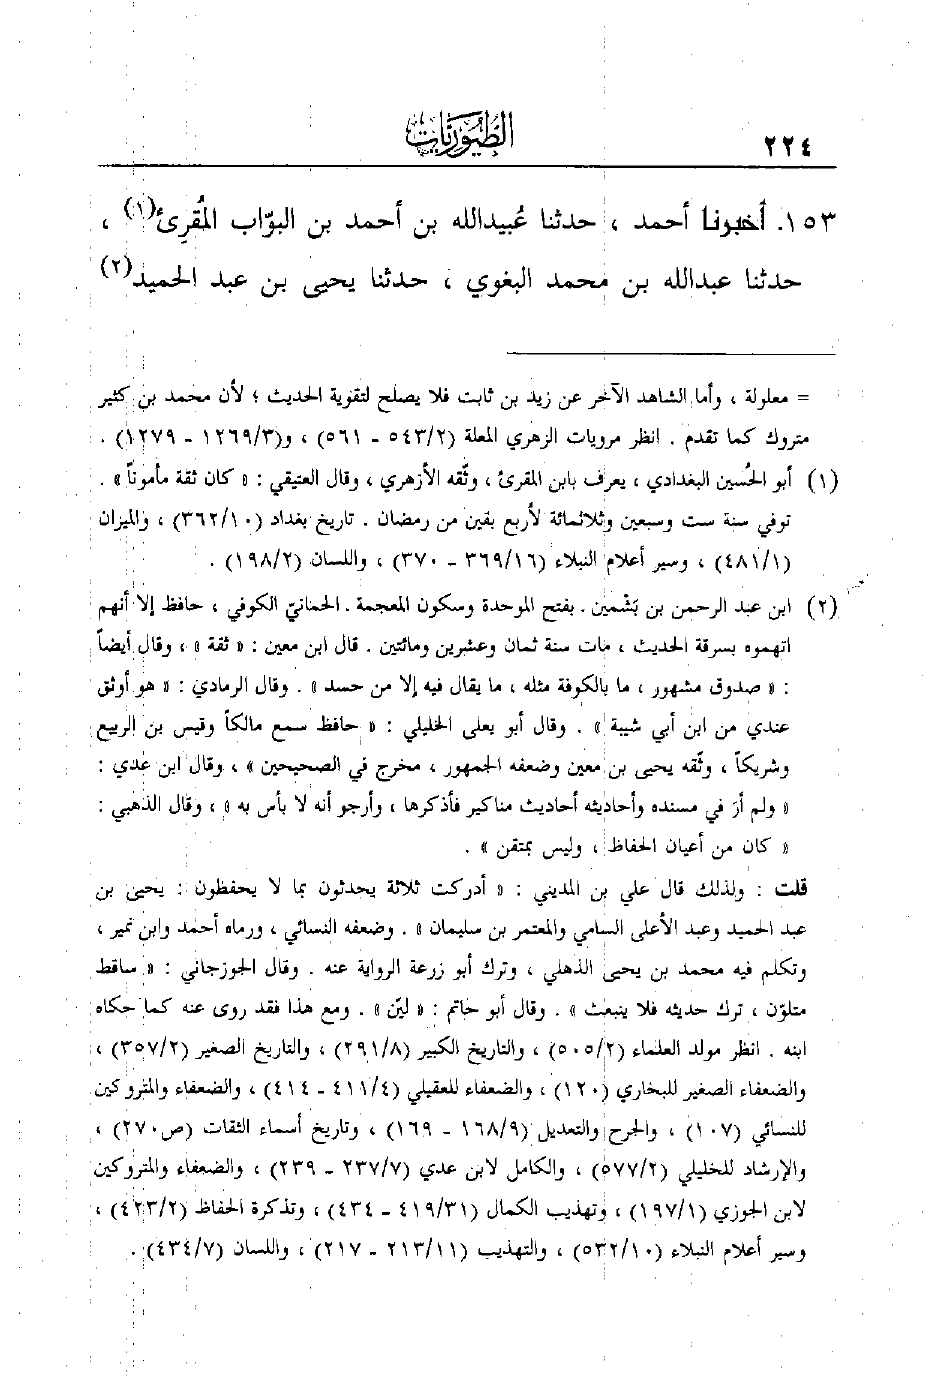 ٢٢٤
الطيوريات
١٥٣. أخبرنا أحمد ، حدثنا عُبيدالله بن أحمد بن البوّاب المُقرِئ(١) ،
حدثنا عبدالله بن محمد البغوي ، حدثنا يحيى بن عبد الحميد(٢)
= معلولة ، وأما الشاهد الآخر عن زيد بن ثابت فلا يصلح لتقوية الحديث ؛ لأن محمد بن كثير
متروك كما تقدم . انظر مرويات الزهري المعلة (٥٤٣/٢ - ٥٦١) ، و(١٢٦٩/٣ - ١٢٧٩) .
(١) أبو الحُسين البغدادي ، يعرف بابن المقرئ ، وثّقه الأزهري ، وقال العتيقي : « كان ثقة مأموناً » .
توفي سنة ست وسبعين وثلاثمائة لأربع بقين من رمضان . تاريخ بغداد (٣٦٢/١٠) ، والميزان
(٤٨١/١) ، وسير أعلام النبلاء (٣٦٩/١٦ - ٣٧٠) ، واللسان (١٩٨/٢) .
(٢) ابن عبد الرحمن بن بَشْمين . بفتح الموحدة وسكون المعجمة . الحمّانيّ الكوفي ، حافظ إلا أنهم
اتهموه بسرقة الحديث ، مات سنة ثمان وعشرين ومائتين . قال ابن معين : « ثقة » ، وقال أيضاً
: « صدوق مشهور ، ما بالكوفة مثله ، ما يقال فيه إلا من حسد » . وقال الرمادي : « هو أوثق
عندي من ابن أبي شيبة » . وقال أبو يعلى الخليلي : « حافظ سمع مالكاً وقيس بن الربيع
وشريكاً ، وثّقه يحيى بن معين وضعفه الجمهور ، مخرج في الصحيحين » ، وقال ابن عدي :
« ولم أرَ في مسنده وأحاديثه أحاديث مناكير فأذكرها ، وأرجو أنه لا بأس به » ، وقال الذهبي :
« كان من أعيان الحفاظ ، وليس بمتقن » .
قلت : ولذلك قال علي بن المديني : « أدركت ثلاثة يحدثون بما لا يحفظون : يحيى بن
عبد الحميد وعبد الأعلى السامي والمعتمر بن سليمان » . وضعفه النسائي ، ورماه أحمد وابن نمير ،
وتكلم فيه محمد بن يحيى الذهلي ، وترك أبو زرعة الرواية عنه . وقال الجوزجاني : « ساقط
متلوّن ، ترك حديثه فلا ينبعث » . وقال أبو حاتم : « ليّن » . ومع هذا فقد روى عنه كما حكاه
ابنه . انظر مولد العلماء (٥٠٥/٢) ، والتاريخ الكبير (٢٩١/٨) ، والتاريخ الصغير (٣٥٧/٢) ،
والضعفاء الصغير للبخاري (١٢٠) ، والضعفاء للعقيلي (٤١١/٤ - ٤١٤) ، والضعفاء والمتروكين
للنسائي (١٠٧) ، والجرح والتعديل (١٦٨/٩ - ١٦٩) ، وتاريخ أسماء الثقات (ص٢٧٠) ،
والإرشاد للخليلي (٥٧٧/٢) ، والكامل لابن عدي (٢٣٧/٧ - ٢٣٩) ، والضعفاء والمتروكين
لابن الجوزي (١٩٧/١) ، وتهذيب الكمال (٤١٩/٣١ - ٤٣٤) ، وتذكرة الحفاظ (٤٢٣/٢) ،
وسير أعلام النبلاء (٥٣٢/١٠) ، والتهذيب (٢١٣/١١ - ٢١٧) ، واللسان (٤٣٤/٧) .